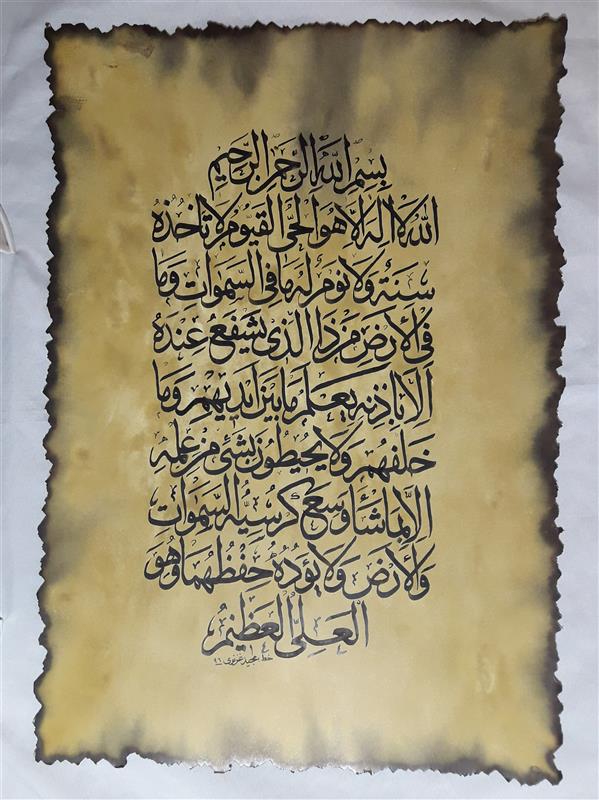 بسم الله الرحمن الرحيم
الله لا اله الا هو الحي القيوم لا تأخذه
سنة ولا نوم له ما في السموات وما
في الأرض من ذا الذي يشفع عنده
الا باذنه يعلم ما بين ايديهم وما
خلفهم ولا يحيطون بشئ من علمه
الا بما شاء وسع كرسيه السموات
والأرض ولا يؤده حفظهما وهو
العلي العظيم
خط مجيد